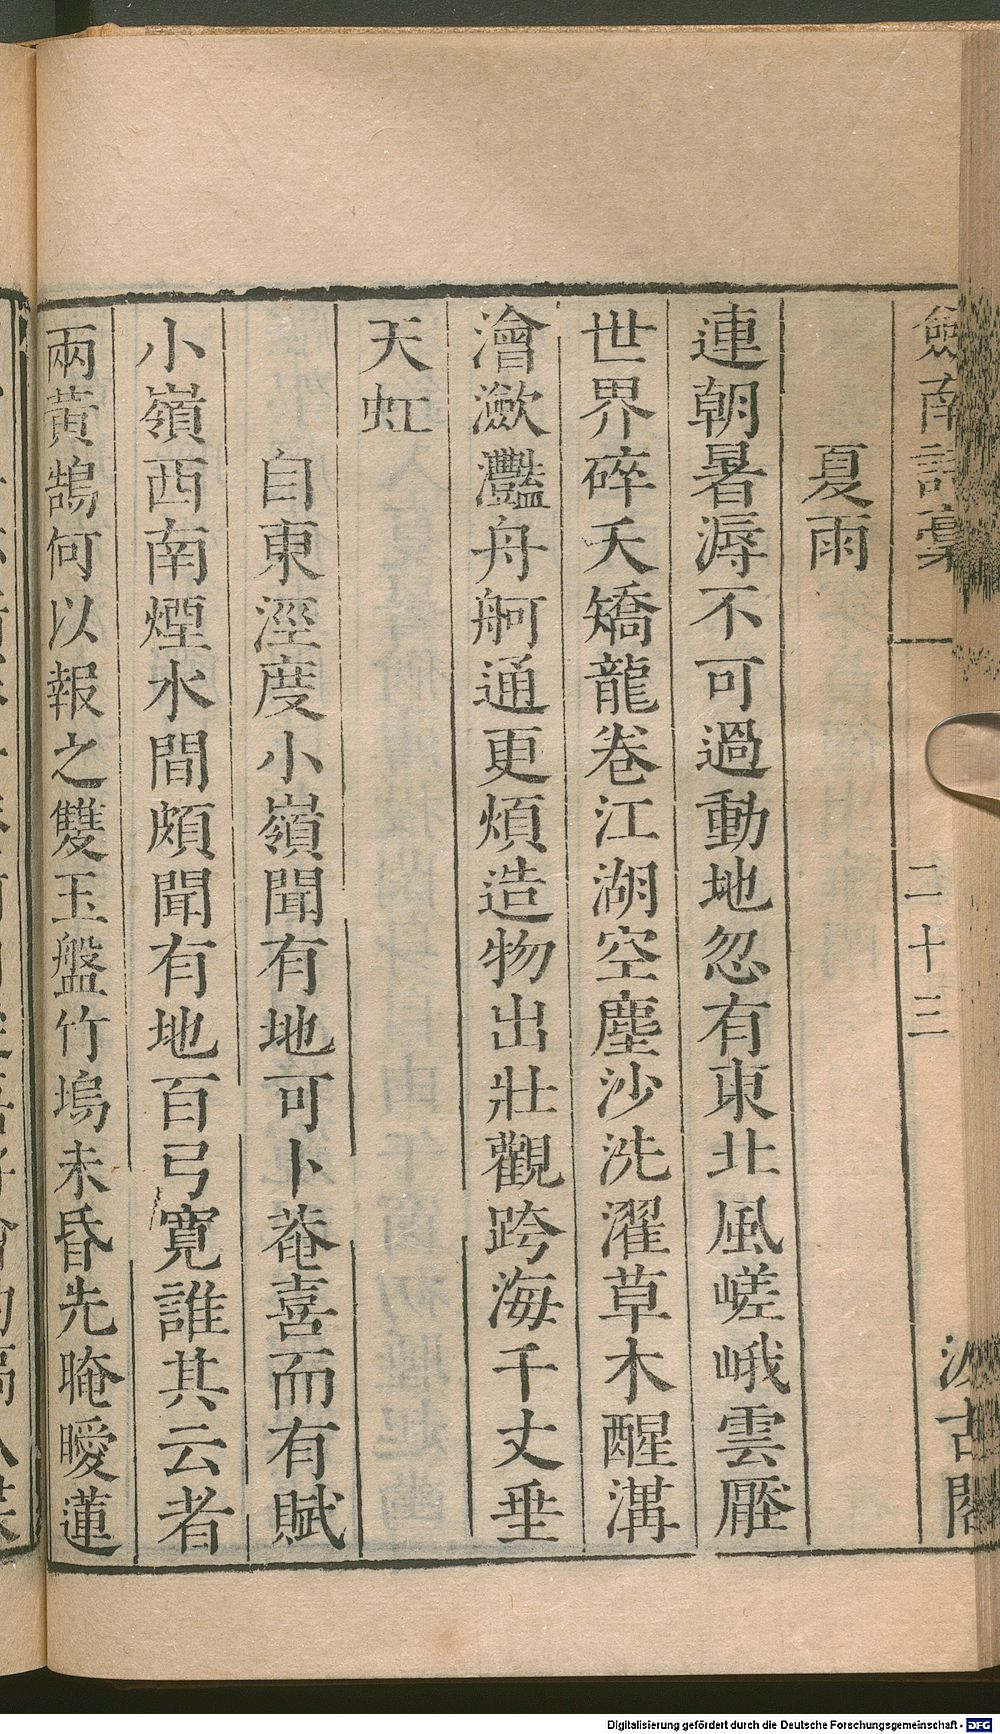 劒南詩稾
二十三
汲古閣
夏雨
連朝暑溽不可過動地忽有東北風嵯峨雲壓
世界碎夭矯龍卷江湖空塵沙洗濯草木醒溝
澮瀲灩舟舸通更煩造物出壯觀跨海千丈垂
天虹
自東涇度小嶺聞有地可卜菴喜而有賦
小嶺西南煙水間頗聞有地百弓寛誰其云者
兩黃鵠何以報之雙玉盤竹塢未昏先晻曖蓮
Digitalisierung gefördert durch die Deutsche Forschungsgemeinschaft - DFG